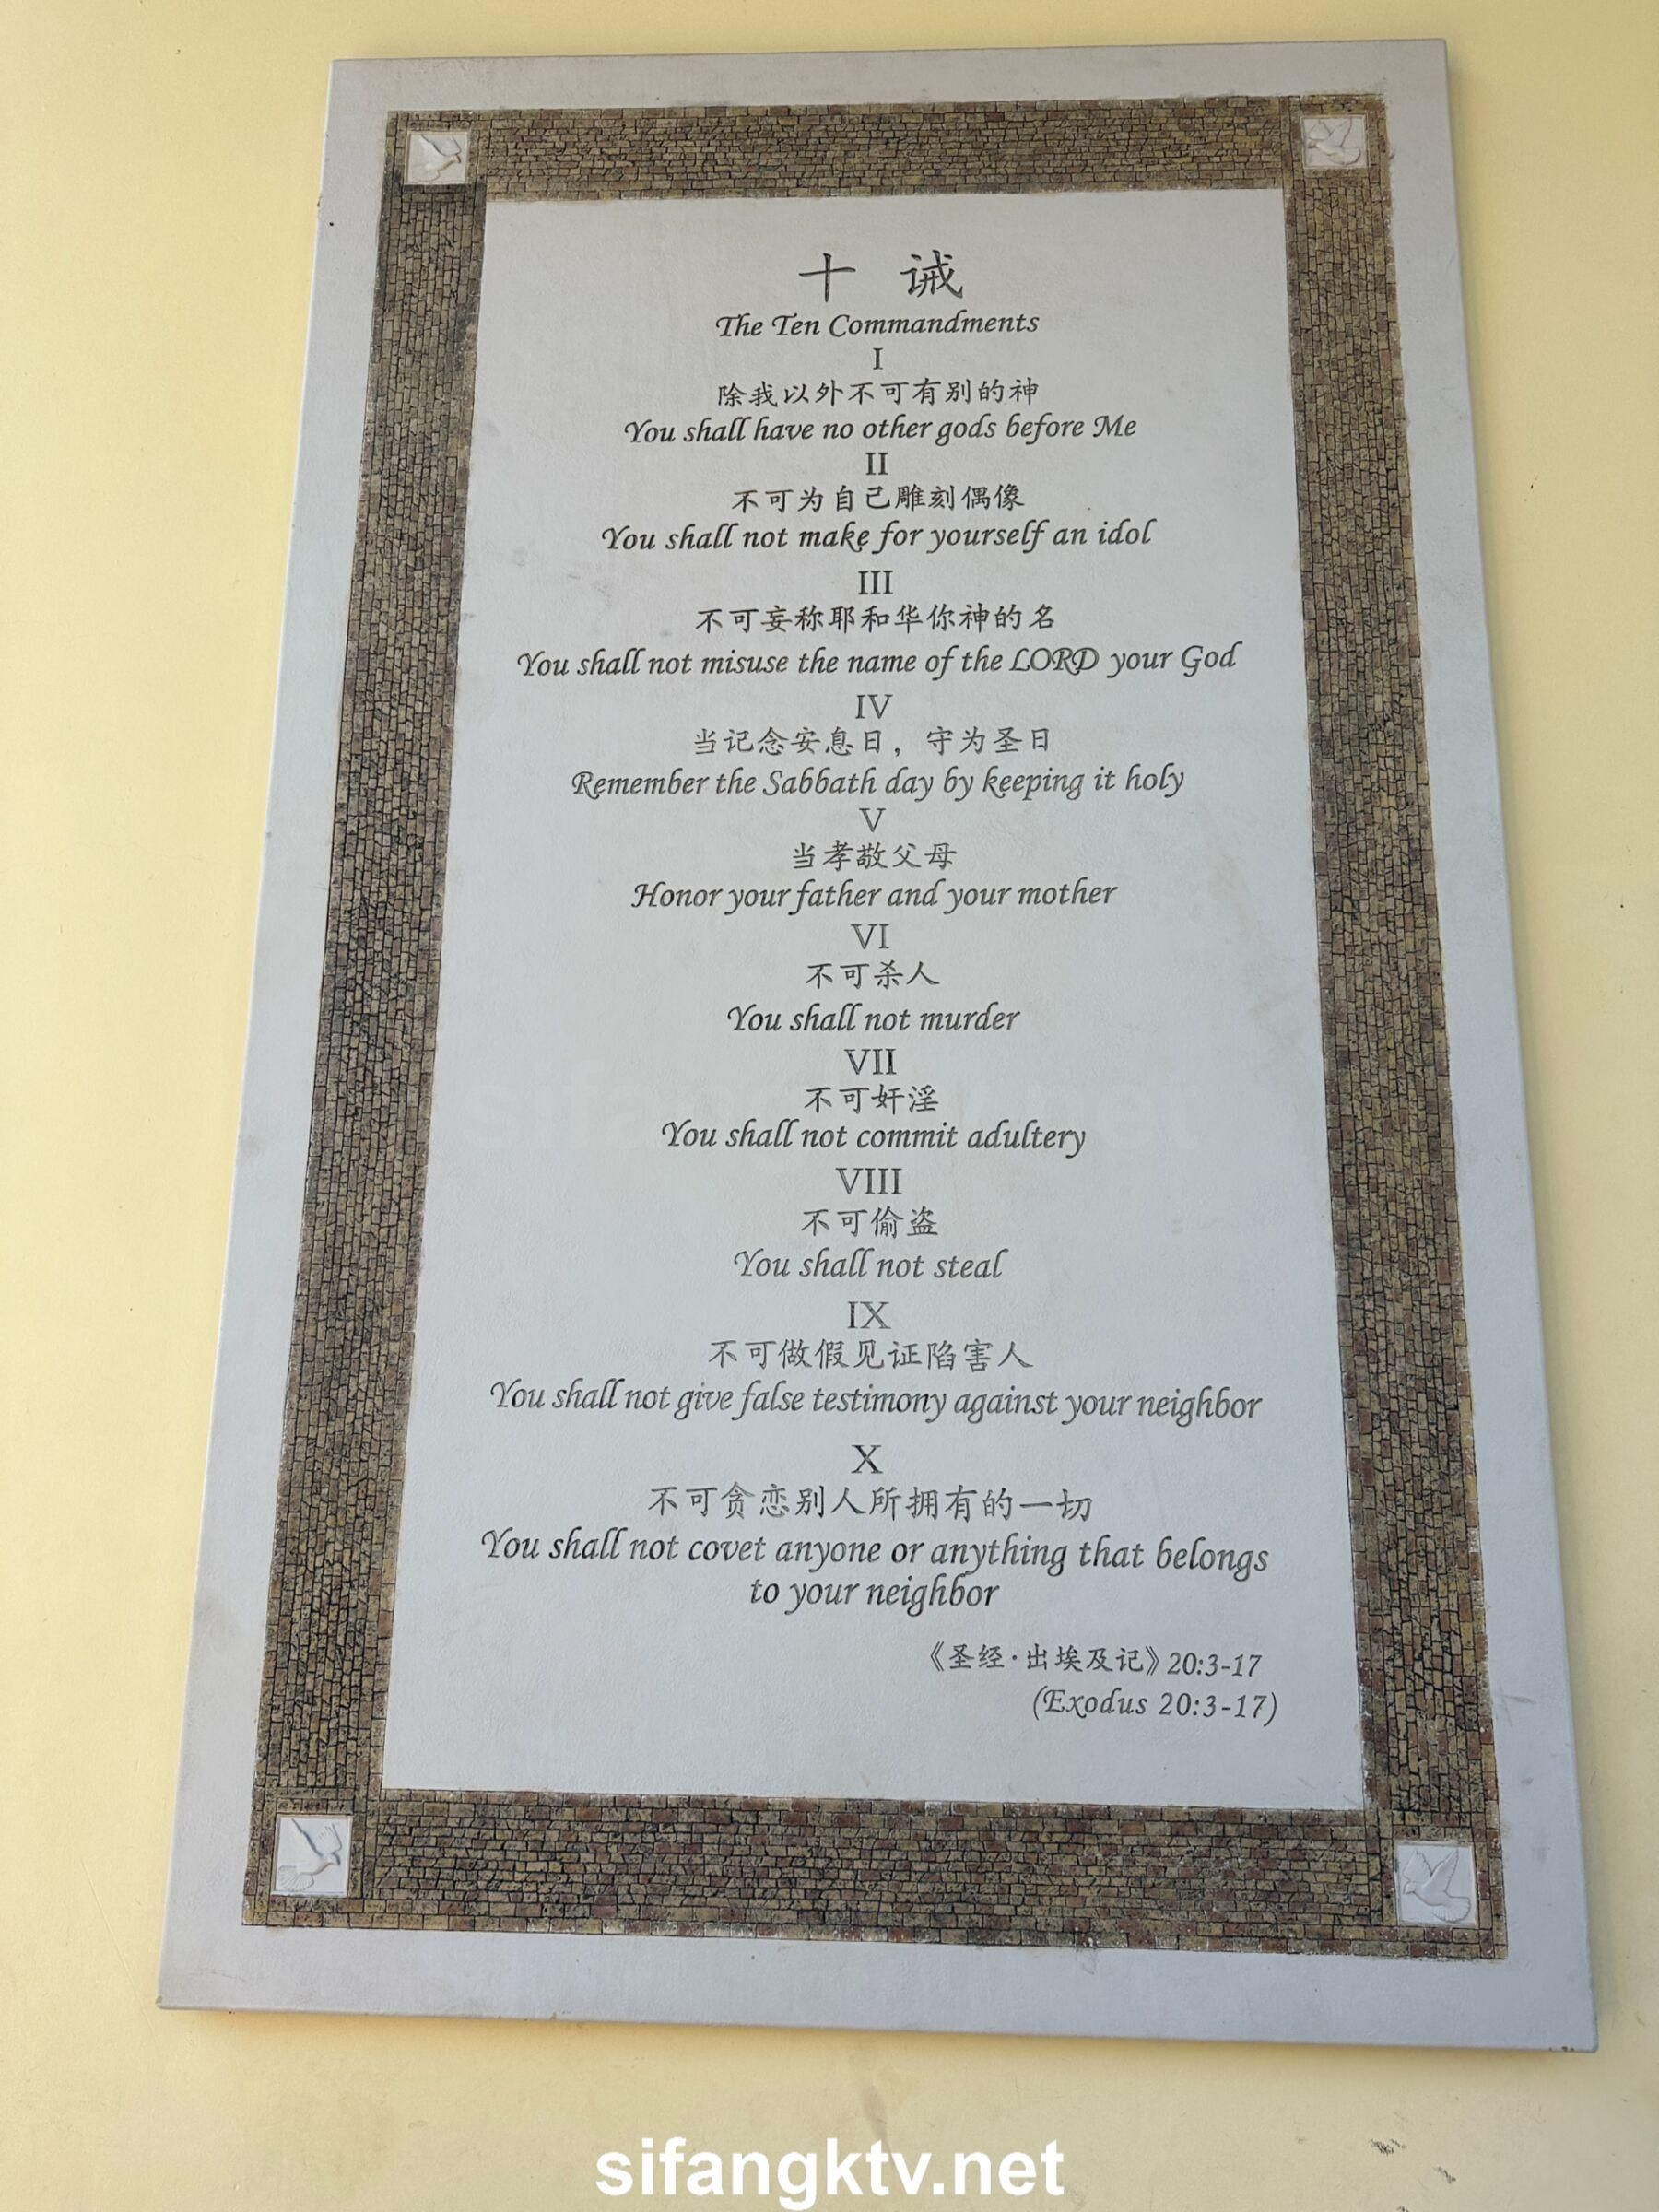 十 诫
The Ten Commandments
I
除我以外不可有别的神
You shall have no other gods before Me
II
不可为自己雕刻偶像
You shall not make for yourself an idol
III
不可妄称耶和华你神的名
You shall not misuse the name of the LORD your God
IV
当记念安息日，守为圣日
Remember the Sabbath day by keeping it holy
V
当孝敬父母
Honor your father and your mother
VI
不可杀人
You shall not murder
VII
不可奸淫
You shall not commit adultery
VIII
不可偷盗
You shall not steal
IX
不可做假见证陷害人
You shall not give false testimony against your neighbor
X
不可贪恋别人所拥有的一切
You shall not covet anyone or anything that belongs
to your neighbor
《圣经·出埃及记》20:3-17
(Exodus 20:3-17)
sifangktv.net